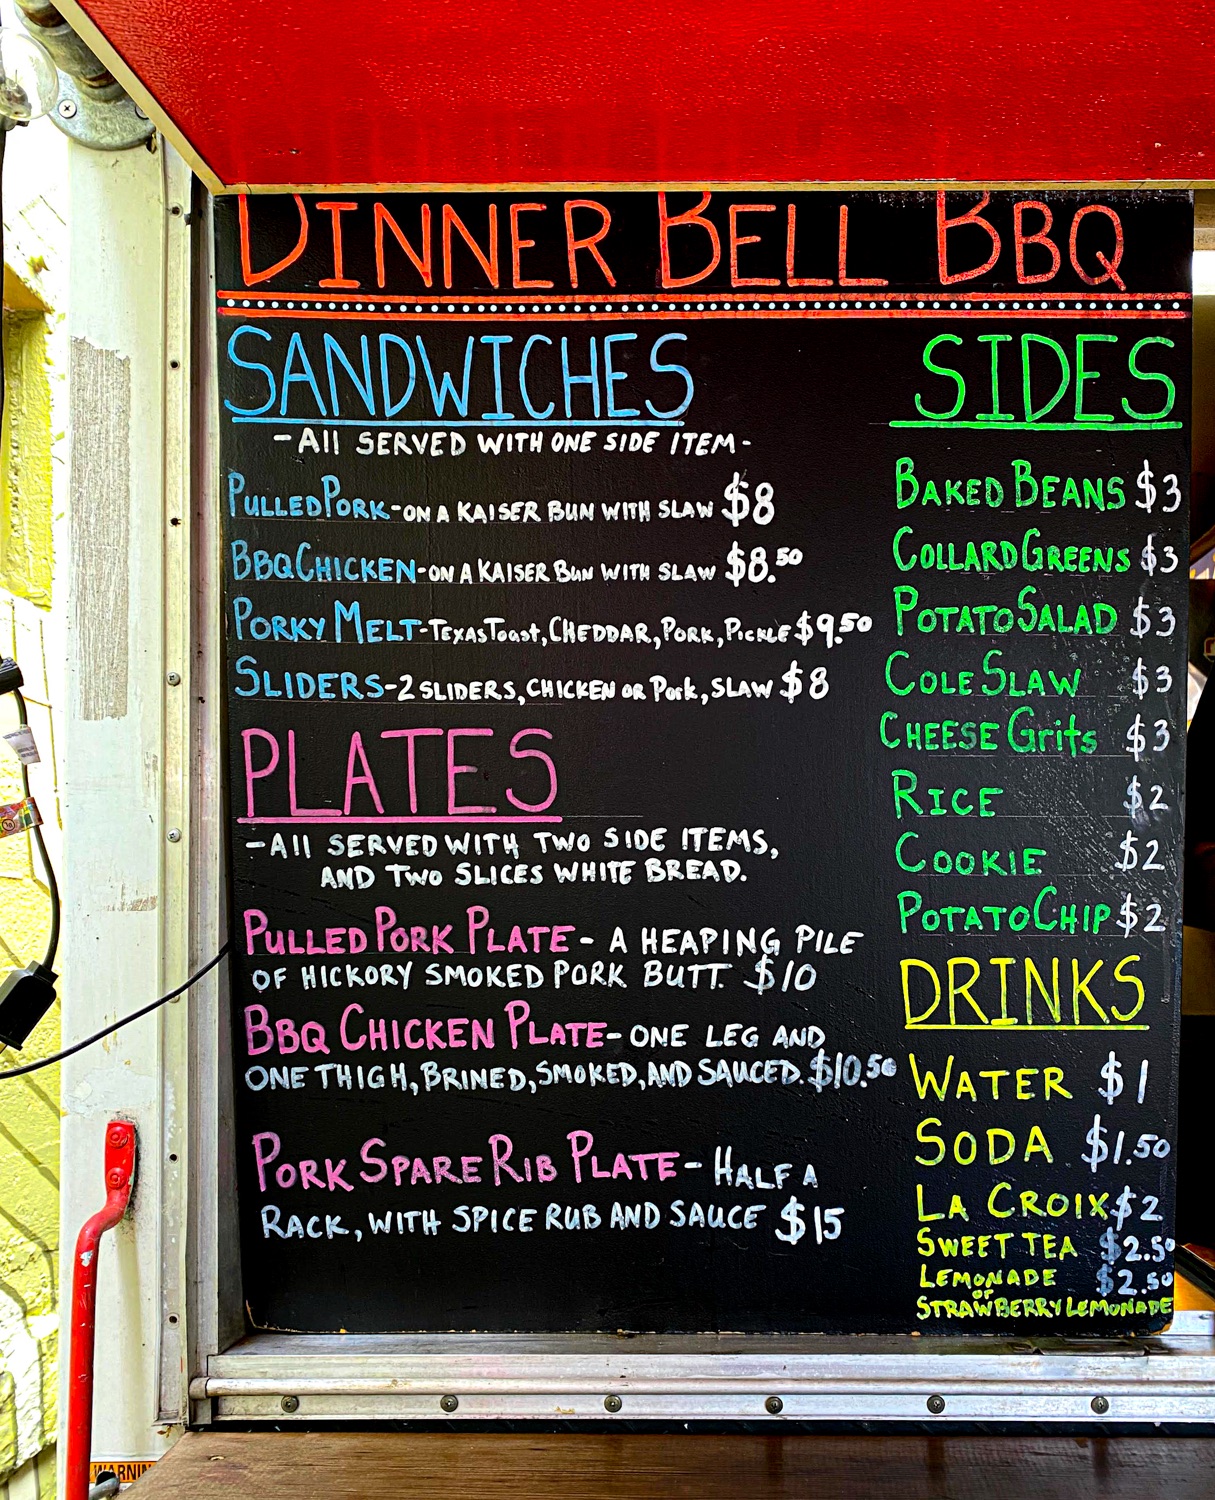 DINNER BELL BBQ
SANDWICHES
-All SERVED WITH ONE SIDE ITEM-
PULLED PORK-ON A KAISER BUN WITH SLAW $8
BBQ CHICKEN-ON A KAISER BUN WITH SLAW $8.50
PORKY MELT-TEXAS Toast, CHEDDAR, PORK, PICKLE $9.50
SLIDERS-2 SLIDERS, CHICKEN OR Pork, SLAW $8
PLATES
-All SERVED WITH TWO SIDE ITEMS,
AND TWO SLICES WHITE BREAD.
PULLED PORK PLATE- A HEAPING PILE
OF HICKORY SMOKED PORK BUTT. $10
BBQ CHICKEN PLATE-ONE LEG AND
ONE THIGH, BRINED, SMOKED, AND SAUCED. $10.50
PORK SPARE RIB PLATE- HALF A
RACK, WITH SPICE RUB AND SAUCE $15
SIDES
BAKED BEANS $3
COLLARD GREENS $3
POTATO SALAD $3
COLE SLAW $3
CHEESE Grits $3
RICE $2
COOKIE $2
POTATO CHIP $2
DRINKS
WATER $1
SODA $1.50
LA CROIX $2
SWEET TEA $2.50
LEMONADE $2.50
OF
STRAWBERRY LEMONADE
WARNIN